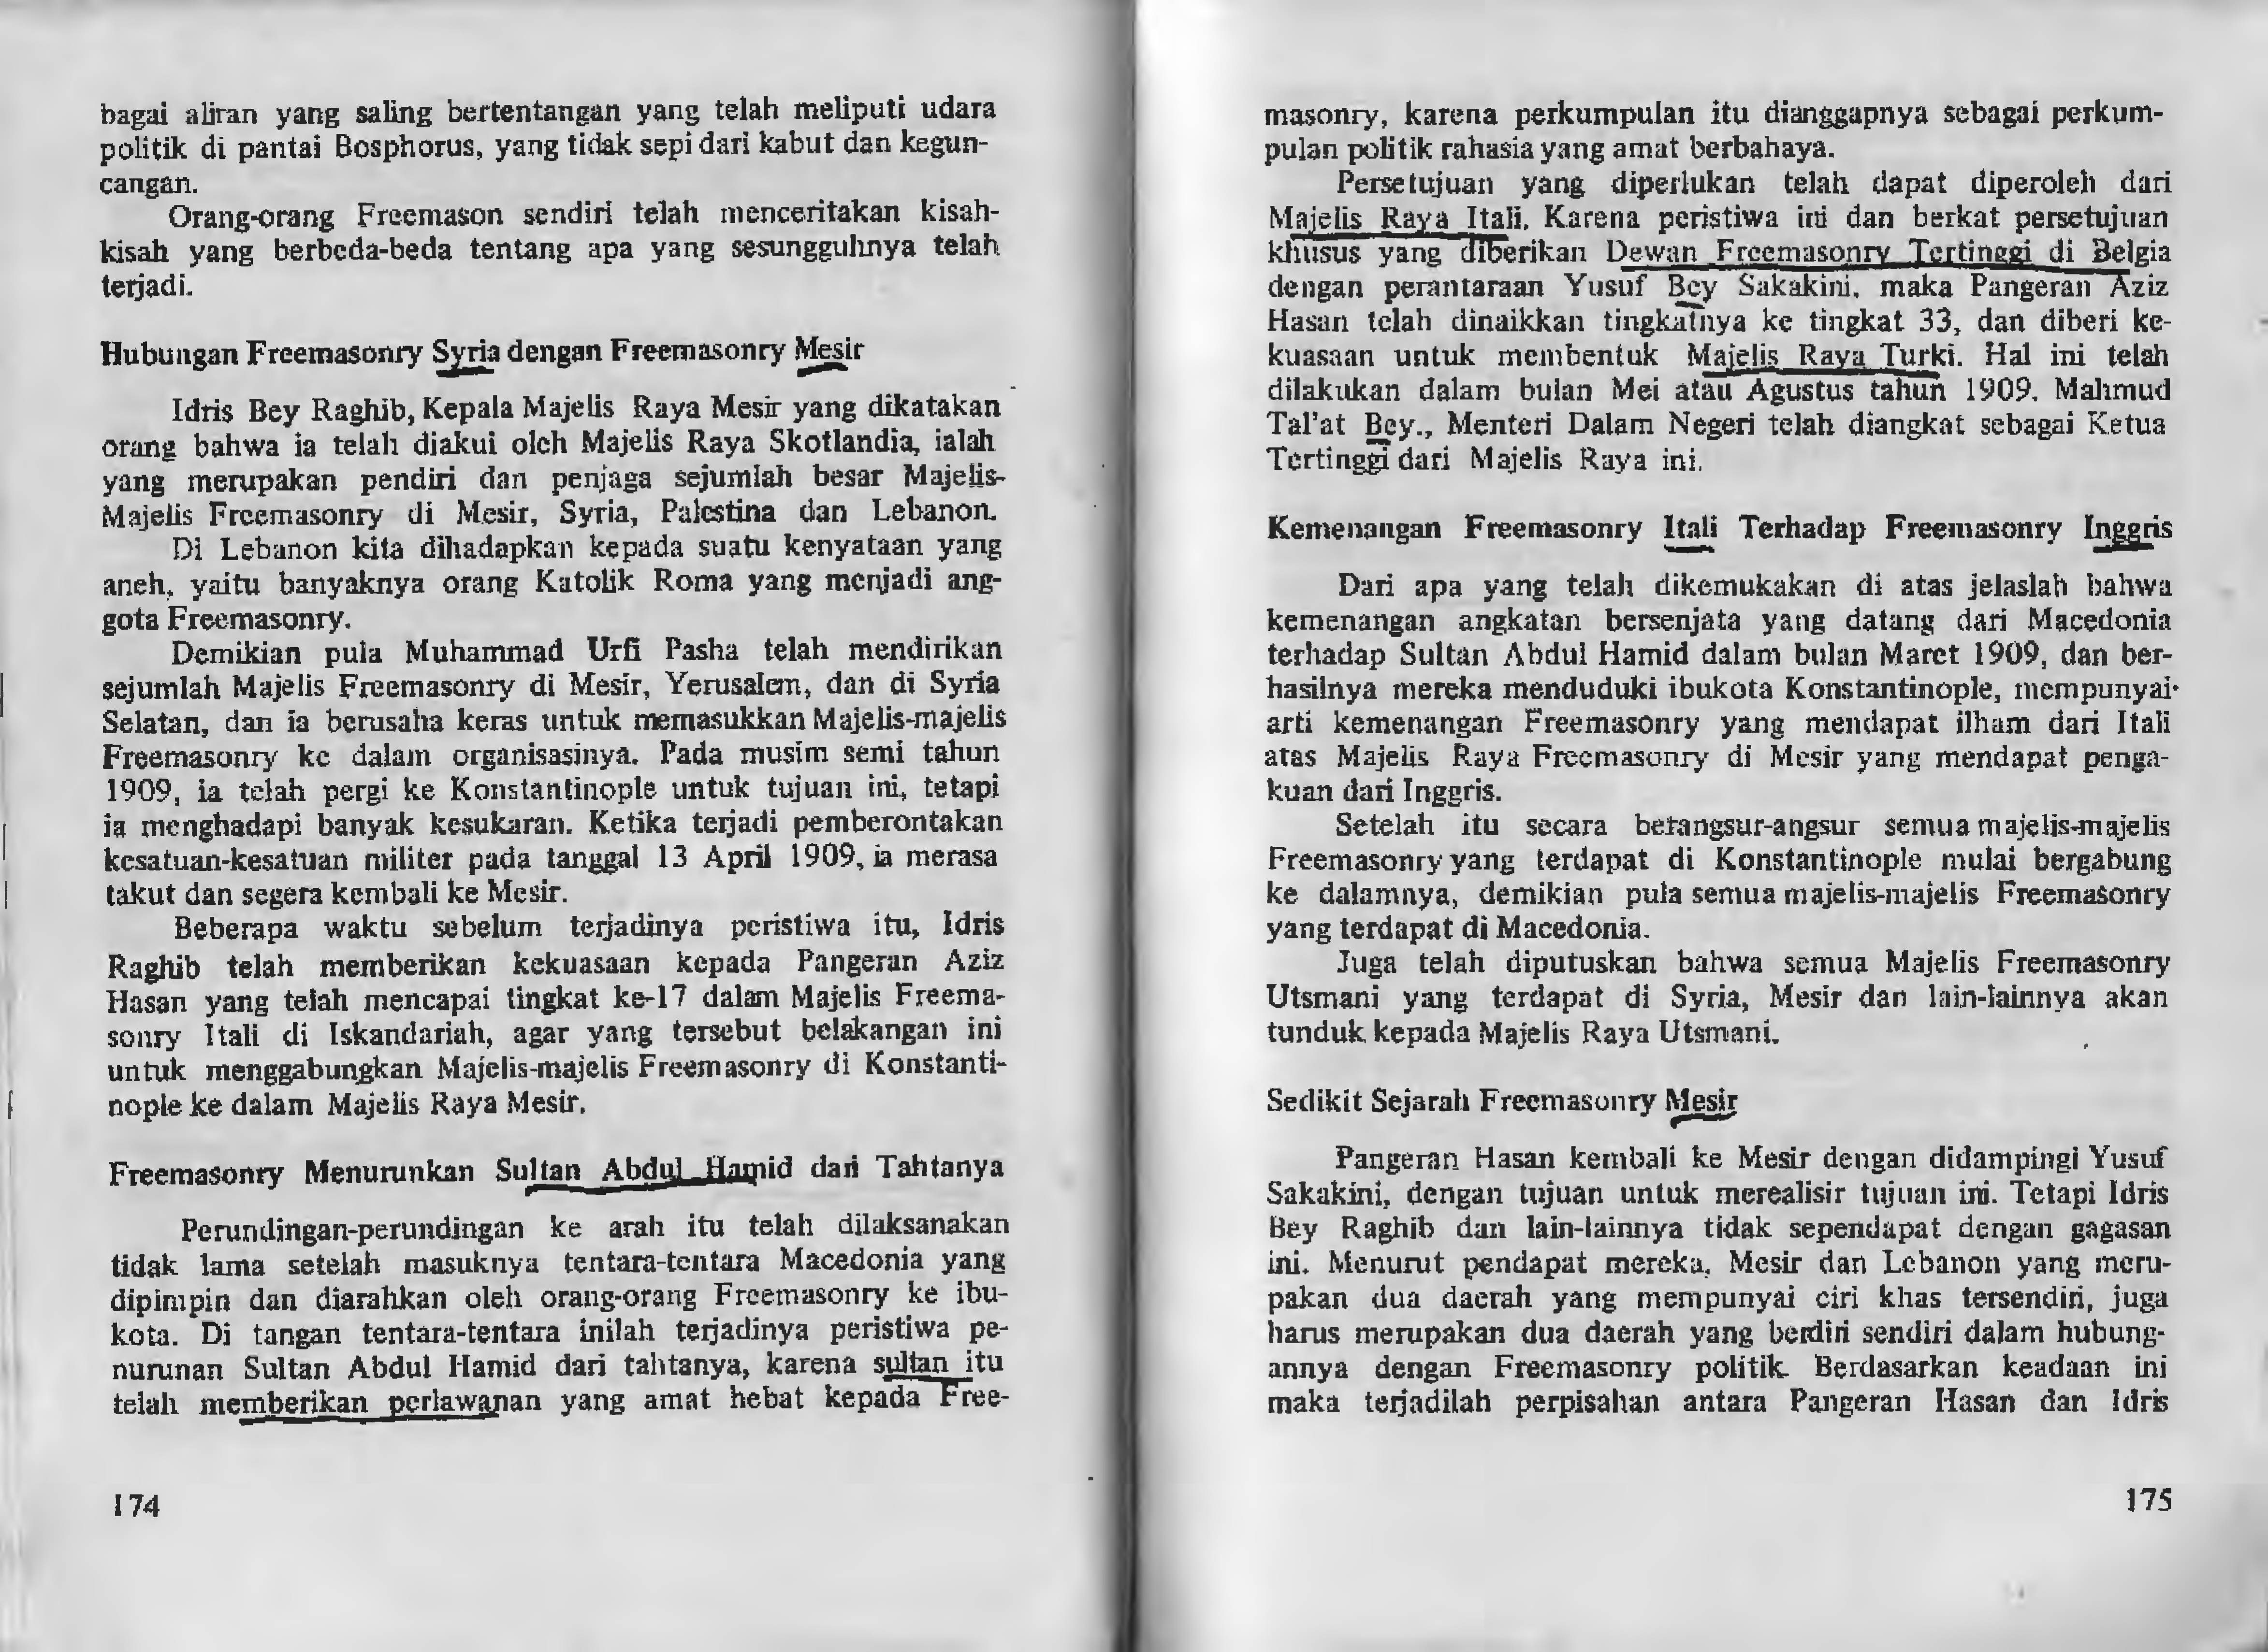 bagai aliran yang saling bertentangan yang telah meliputi udara
politik di pantai Bosphorus, yang tidak sepi dari kabut dan kegun-
cangan.
Orang-orang Freemason sendiri telah menceritakan kisah-
kisah yang berbeda-beda tentang apa yang sesungguhnya telah
terjadi.
Hubungan Freemasonry Syria dengan Freemasonry Mesir
Idris Bey Raghib, Kepala Majelis Raya Mesir yang dikatakan
orang bahwa ia telah diakui oleh Majelis Raya Skotlandia, ialah
yang merupakan pendiri dan penjaga sejumlah besar Majelis-
Majelis Freemasonry di Mesir, Syria, Palestina dan Lebanon.
Di Lebanon kita dihadapkan kepada suatu kenyataan yang
aneh, yaitu banyaknya orang Katolik Roma yang menjadi ang-
gota Freemasonry.
Demikian pula Muhammad Urfi Pasha telah mendirikan
sejumlah Majelis Freemasonry di Mesir, Yerusalem, dan di Syria
Selatan, dan ia berusaha keras untuk memasukkan Majelis-majelis
Freemasonry ke dalam organisasinya. Pada musim semi tahun
1909, ia telah pergi ke Konstantinople untuk tujuan ini, tetapi
ia menghadapi banyak kesukaran. Ketika terjadi pemberontakan
kesatuan-kesatuan militer pada tanggal 13 April 1909, ia merasa
takut dan segera kembali ke Mesir.
Beberapa waktu sebelum terjadinya peristiwa itu, Idris
Raghib telah memberikan kekuasaan kepada Pangeran Aziz
Hasan yang telah mencapai tingkat ke-17 dalam Majelis Freema-
sonry Itali di Iskandariah, agar yang tersebut belakangan ini
untuk menggabungkan Majelis-majelis Freemasonry di Konstanti-
nople ke dalam Majelis Raya Mesir.
Freemasonry Menurunkan Sultan Abdul Hamid dari Tahtanya
Perundingan-perundingan ke arah itu telah dilaksanakan
tidak lama setelah masuknya tentara-tentara Macedonia yang
dipimpin dan diarahkan oleh orang-orang Freemasonry ke ibu-
kota. Di tangan tentara-tentara inilah terjadinya peristiwa pe-
nurunan Sultan Abdul Hamid dari tahtanya, karena sultan itu
telah memberikan perlawanan yang amat hebat kepada Free-
174
masonry, karena perkumpulan itu dianggapnya sebagai perkum-
pulan politik rahasia yang amat berbahaya.
Persetujuan yang diperlukan telah dapat diperoleh dari
Majelis Raya Itali. Karena peristiwa ini dan berkat persetujuan
khusus yang diberikan Dewan Freemasonry Tertinggi di Belgia
dengan perantaraan Yusuf Bey Sakakini, maka Pangeran Aziz
Hasan telah dinaikkan tingkatnya ke tingkat 33, dan diberi ke-
kuasaan untuk membentuk Majelis Raya Turki. Hal ini telah
dilakukan dalam bulan Mei atau Agustus tahun 1909. Mahmud
Tal'at Bey., Menteri Dalam Negeri telah diangkat sebagai Ketua
Tertinggi dari Majelis Raya ini.
Kemenangan Freemasonry Itali Terhadap Freemasonry Inggris
Dari apa yang telah dikemukakan di atas jelaslah bahwa
kemenangan angkatan bersenjata yang datang dari Macedonia
terhadap Sultan Abdul Hamid dalam bulan Maret 1909, dan ber-
hasilnya mereka menduduki ibukota Konstantinople, mempunyai
arti kemenangan Freemasonry yang mendapat ilham dari Itali
atas Majelis Raya Freemasonry di Mesir yang mendapat penga-
kuan dari Inggris.
Setelah itu secara berangsur-angsur semua majelis-majelis
Freemasonry yang terdapat di Konstantinople mulai bergabung
ke dalamnya, demikian pula semua majelis-majelis Freemasonry
yang terdapat di Macedonia.
Juga telah diputuskan bahwa semua Majelis Freemasonry
Utsmani yang terdapat di Syria, Mesir dan lain-lainnya akan
tunduk kepada Majelis Raya Utsmani.
Sedikit Sejarah Freemasonry Mesir
Pangeran Hasan kembali ke Mesir dengan didampingi Yusuf
Sakakini, dengan tujuan untuk merealisir tujuan ini. Tetapi Idris
Bey Raghib dan lain-lainnya tidak sependapat dengan gagasan
ini. Menurut pendapat mereka, Mesir dan Lebanon yang meru-
pakan dua daerah yang mempunyai ciri khas tersendiri, juga
harus merupakan dua daerah yang berdiri sendiri dalam hubung-
annya dengan Freemasonry politik. Berdasarkan keadaan ini
maka terjadilah perpisahan antara Pangeran Hasan dan Idris
175